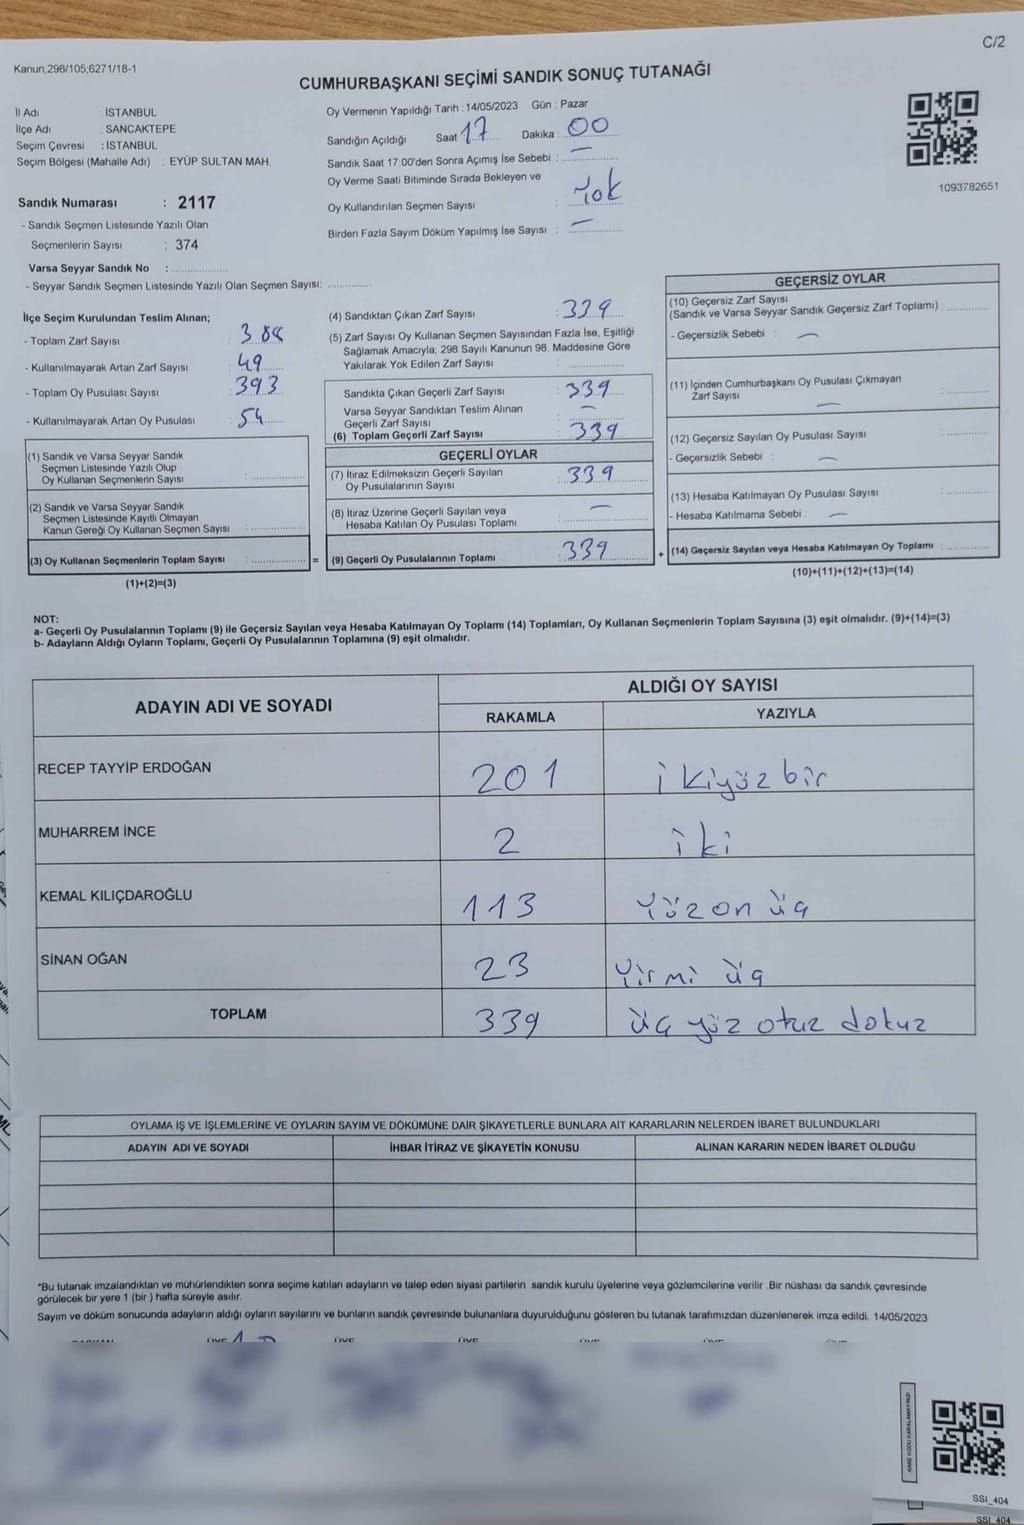 C/2
Kanun;298/105;6271/18-1
CUMHURBAŞKANI SEÇİMİ SANDIK SONUÇ TUTANAĞI
İl Adı : İSTANBUL
İlçe Adı : SANCAKTEPE
Seçim Çevresi : İSTANBUL
Seçim Bölgesi (Mahalle Adı) : EYÜP SULTAN MAH.
Sandık Numarası : 2117
- Sandık Seçmen Listesinde Yazılı Olan
Seçmenlerin Sayısı : 374
Varsa Seyyar Sandık No : ..................
- Seyyar Sandık Seçmen Listesinde Yazılı Olan Seçmen Sayısı: ..............
Oy Vermenin Yapıldığı Tarih : 14/05/2023 Gün : Pazar
Sandığın Açıldığı Saat 17 Dakika : 00
Sandık Saat 17:00'den Sonra Açımış İse Sebebi : —
Oy Verme Saati Bitiminde Sırada Bekleyen ve
Oy Kullandırılan Seçmen Sayısı : Yok
Birden Fazla Sayım Döküm Yapılmış İse Sayısı : —
1093782651
İlçe Seçim Kurulundan Teslim Alınan;
- Toplam Zarf Sayısı : 388
- Kullanılmayarak Artan Zarf Sayısı : 49
- Toplam Oy Pusulası Sayısı : 393
- Kullanılmayarak Artan Oy Pusulası : 54
(1) Sandık ve Varsa Seyyar Sandık
Seçmen Listesinde Yazılı Olup
Oy Kullanan Seçmenlerin Sayısı :
(2) Sandık ve Varsa Seyyar Sandık
Seçmen Listesinde Kayıtlı Olmayan
Kanun Gereği Oy Kullanan Seçmen Sayısı :
(3) Oy Kullanan Seçmenlerin Toplam Sayısı : =
(1)+(2)=(3)
(4) Sandıktan Çıkan Zarf Sayısı : 339
(5) Zarf Sayısı Oy Kullanan Seçmen Sayısından Fazla İse, Eşitliği
Sağlamak Amacıyla; 298 Sayılı Kanunun 98. Maddesine Göre
Yakılarak Yok Edilen Zarf Sayısı :
Sandıkta Çıkan Geçerli Zarf Sayısı : 339
Varsa Seyyar Sandıktan Teslim Alınan
Geçerli Zarf Sayısı : —
(6) Toplam Geçerli Zarf Sayısı : 339
GEÇERLİ OYLAR
(7) İtiraz Edilmeksizin Geçerli Sayılan
Oy Pusulalarının Sayısı : 339
(8) İtiraz Üzerine Geçerli Sayılan veya
Hesaba Katılan Oy Pusulası Toplamı : —
(9) Geçerli Oy Pusulalarının Toplamı : 339 +
GEÇERSİZ OYLAR
(10) Geçersiz Zarf Sayısı
(Sandık ve Varsa Seyyar Sandık Geçersiz Zarf Toplamı) :
- Geçersizlik Sebebi : —
(11) İçinden Cumhurbaşkanı Oy Pusulası Çıkmayan
Zarf Sayısı : —
(12) Geçersiz Sayılan Oy Pusulası Sayısı :
- Geçersizlik Sebebi : —
(13) Hesaba Katılmayan Oy Pusulası Sayısı :
- Hesaba Katılmama Sebebi : —
(14) Geçersiz Sayılan veya Hesaba Katılmayan Oy Toplamı :
(10)+(11)+(12)+(13)=(14)
NOT:
a- Geçerli Oy Pusulalarının Toplamı (9) ile Geçersiz Sayılan veya Hesaba Katılmayan Oy Toplamı (14) Toplamları, Oy Kullanan Seçmenlerin Toplam Sayısına (3) eşit olmalıdır. (9)+(14)=(3)
b- Adayların Aldığı Oyların Toplamı, Geçerli Oy Pusulalarının Toplamına (9) eşit olmalıdır.
ADAYIN ADI VE SOYADI
ALDIĞI OY SAYISI
RAKAMLA YAZIYLA
RECEP TAYYİP ERDOĞAN 201 ikiyüz bir
MUHARREM İNCE 2 iki
KEMAL KILIÇDAROĞLU 113 Yüz on üç
SİNAN OĞAN 23 Yirmi üç
TOPLAM 339 üç yüz otuz dokuz
OYLAMA İŞ VE İŞLEMLERİNE VE OYLARIN SAYIM VE DÖKÜMÜNE DAİR ŞİKAYETLERLE BUNLARA AİT KARARLARIN NELERDEN İBARET BULUNDUKLARI
ADAYIN ADI VE SOYADI İHBAR İTİRAZ VE ŞİKAYETİN KONUSU ALINAN KARARIN NEDEN İBARET OLDUĞU
*Bu tutanak imzalandıktan ve mühürlendikten sonra seçime katılan adayların ve talep eden siyasi partilerin sandık kurulu üyelerine veya gözlemcilerine verilir .Bir nüshası da sandık çevresinde
görülecek bir yere 1 (bir ) hafta süreyle asılır.
Sayım ve döküm sonucunda adayların aldığı oyların sayılarını ve bunların sandık çevresinde bulunanlara duyurulduğunu gösteren bu tutanak tarafımızdan düzenlenerek imza edildi. 14/05/2023
KARE KODU KARALAMAYINIZ!
SSI_404
SSI_404